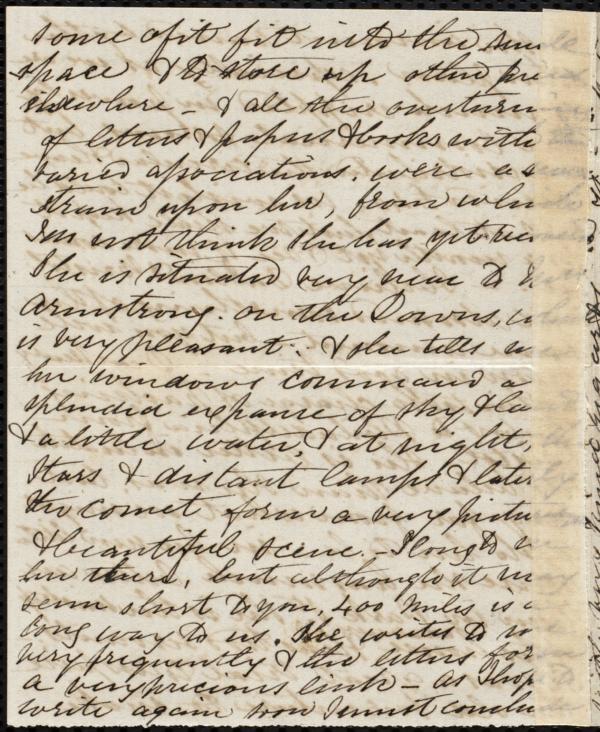 some of it fit into the
space & to store up other pre
elsewhere - & all the overturn
of letters & papers & books with
varied associations, were a s
strain upon her, from whi
I do not think she has yet rec
She is situated very near to
Armstrong. on the Downs,
is very pleasant. & she tells
her windows command a
splendid expanse of sky & la
& a little water, & at night,
stars & distant lamps & later
the comet form a very pictu
& beautiful scene. - I long to
her there, but although it m
seem short to you, 400 miles is a
long way to us. She writes to
very frequently & the letters for
a very precious link - as I hope to
write again soon I must conclude